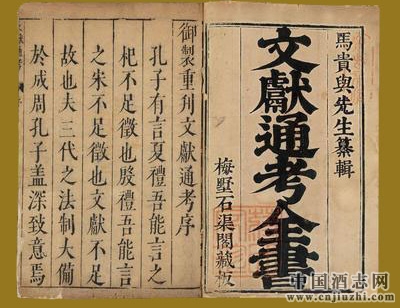 馬貴與先生纂輯
文獻通考全書
梅墅石渠閣藏板
御製重刋文獻通考序
孔子有言夏禮吾能言之
杞不足徵也殷禮吾能言
之宋不足徵也文獻不足
故也夫三代之法制大備
於成周孔子盖深致意焉
中国酒志网
www.cnjiuzhi.com